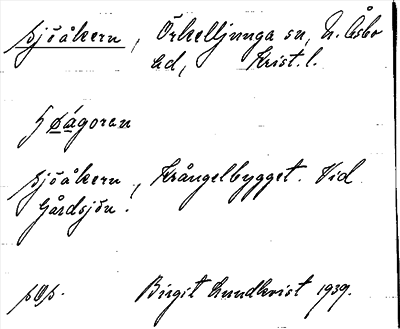 Sjöåkern, Örkelljunga sn, N. Åsbo
hd, Krist. l.
Sjöåkern, Krångelbygget. Vid
Gårdsjön.
Birgit Lundkvist 1939.